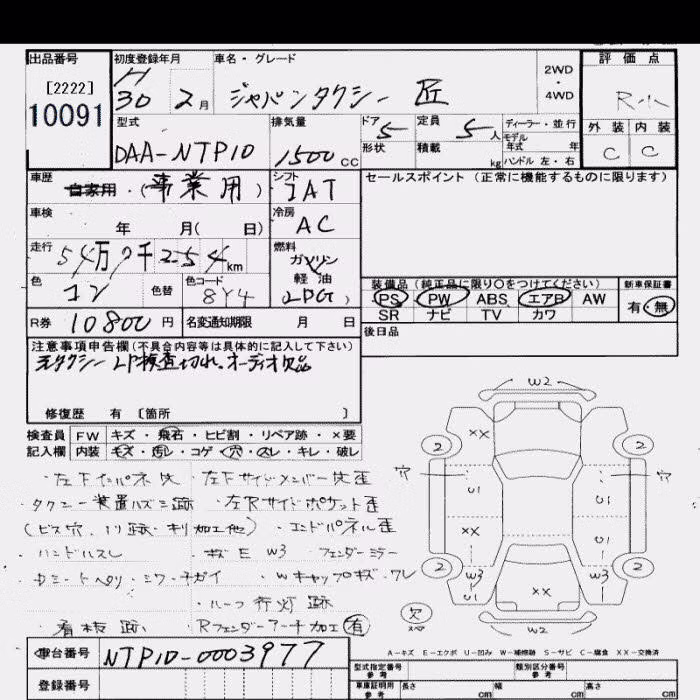 出品番号 初度登録年月 車名・グレード 2WD・4WD 評価点
[2222]
10091
H30 2月 ジャパンタクシー 匠 R小
型式 排気量 ドア 定員 ディーラー・並行
DAA-NTP10 1500cc 5 5人 モデル年式 年
形状 積載 kg ハンドル 左・右
外装 内装
C C
車歴 シフト セールスポイント(正常に機能するものに限ります)
自家用・(事業用) IAT
車検 冷房
年 月( 日) AC
走行 燃料
54万7千254km ガソリン
色 色替 色コード 軽油
コン 8Y4 (LPG)
装備品(純正品に限り○をつけてください) 新車保証書
PS PW ABS エアB AW 有・無
SR ナビ TV カワ
R券 10800円 名変通知期限 月 日 後日品
注意事項申告欄(不具合内容等は具体的に記入して下さい)
元タクシー LP検査切れ。オーディオ欠品
修復歴 有 〔箇所 〕
検査員 FW キズ・飛石・ヒビ割・リペア跡・×要
記入欄 内装 キズ・汚レ・コゲ・穴・スレ・キレ・破レ
・左下インパネ欠 ・左下サイドメンバー先歪
・タクシー装置ハズシ跡 ・左Rサイドポケット歪
(ビス穴、ノリ跡・利加工他) ・エンドパネル歪
・ハンドルスレ ・ボズE W3 フェンダーミラー
・Wキャップキズ・ワレ
・ルーフ行灯跡
・看板跡 ・Rフェンダーアーチ加工有
W2
2 XX 2
穴 U1 U1 穴
XX U1
2 W3 W3 2
XX
欠 W2
A-キズ E-エクボ U-凹み W-補修跡 S-サビ C-腐食 XX-交換済
車台番号 NTP10-0003977
型式指定番号 参考 類別区分番号 参考
登録番号
車庫証明用 参考 長さ cm 幅 cm 高さ cm